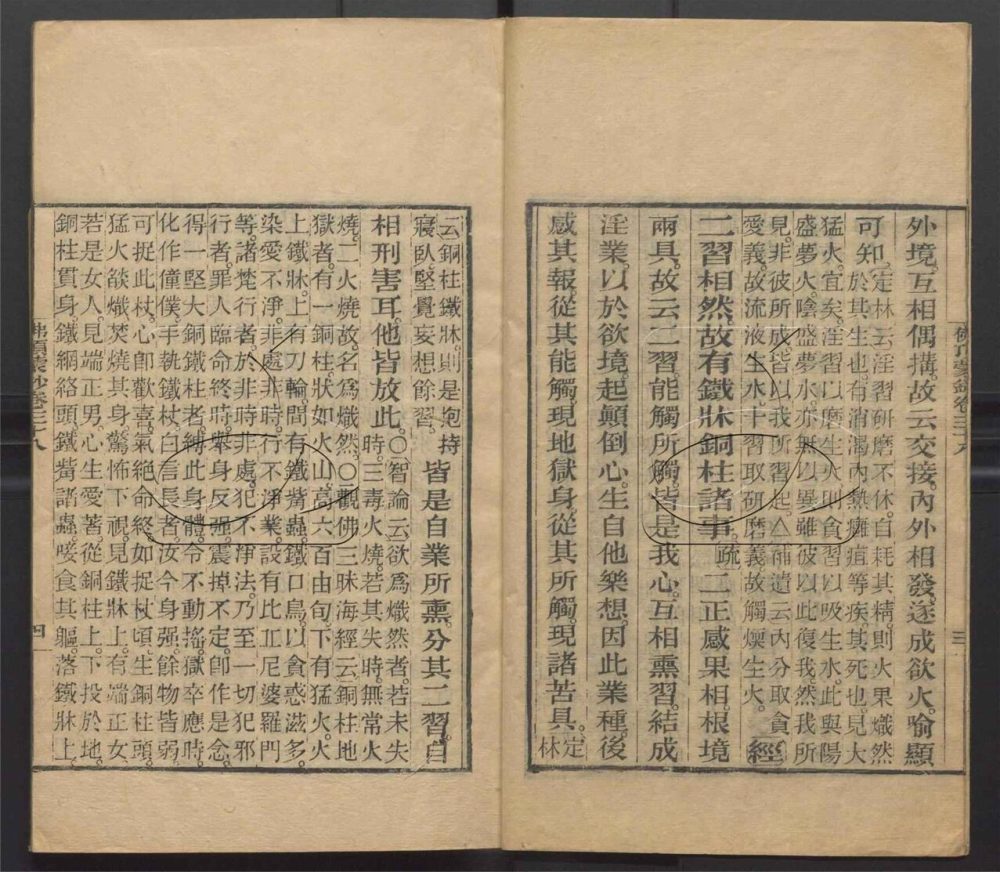 佛頂蒙鈔卷三十八 三
外境互相偶搆故云交接。內外相發遂成欲火。喻顯
可知。
定林云淫習研磨不休。自耗其精。則火果熾然
於其生也。有消渴內熱癰疽等疾。其死也。見大
猛火。宜矣。淫習以磨生火。則貪習以吸生水。此與陽
盛夢火。陰盛夢水。亦無以異。雖彼以此復我。然我所
見。非彼所成。皆以我所習起。△補遺云內分取貪
愛義。故流液生水。十習取研磨義。故觸煗生火。
經
二習相然。故有鐵牀銅柱諸事。疏二正感果相。根境
兩具。故云二習。能觸所觸。皆是我心。互相熏習。結成
淫業。以於欲境。起顛倒心。生自他樂想。因此業種。後
感其報。從其能觸。現地獄身。從其所觸。現諸苦具。定林
云銅柱鐵牀。則是抱持
寢臥堅覺妄想餘習。
皆是自業所熏。分其二習。自
相刑害耳。他皆放此。
○智論云欲爲熾然者。若未失
時。三毒火燒。若其失時。無常火
燒。二火燒故。名爲熾然。○觀佛三昧海經云。銅柱地
獄者。有一銅柱。狀如火山。高六百由旬。下有猛火。火
上鐵牀。上有刀輪。間有鐵觜蟲。鐵口鳥。以貪惑滋多。
染愛不淨。非處非時。行不淨業。設有比丘尼婆羅門
等諸梵行者。於非時非處。犯不淨法。乃至一切犯邪
行者。罪人臨命終時。舉身反强。震掉不定。卽作是念。
得一堅大銅鐵柱者。縛此身體。令不動搖。獄卒應時。
化作僮僕。手執鐵杖。白言長者。汝今身强。餘物皆弱。
可捉此杖。心卽歡喜。氣絕命終。如捉杖頃。生銅柱頭。
猛火燄熾。焚燒其身。驚怖下視。見鐵牀上。有端正女。
若是女人。見端正男。心生愛著。從銅柱上。下投於地。
銅柱貫身。鐵網絡頭。鐵觜諸蟲。唼食其軀。落鐵牀上。
佛頂蒙鈔卷三十八 四